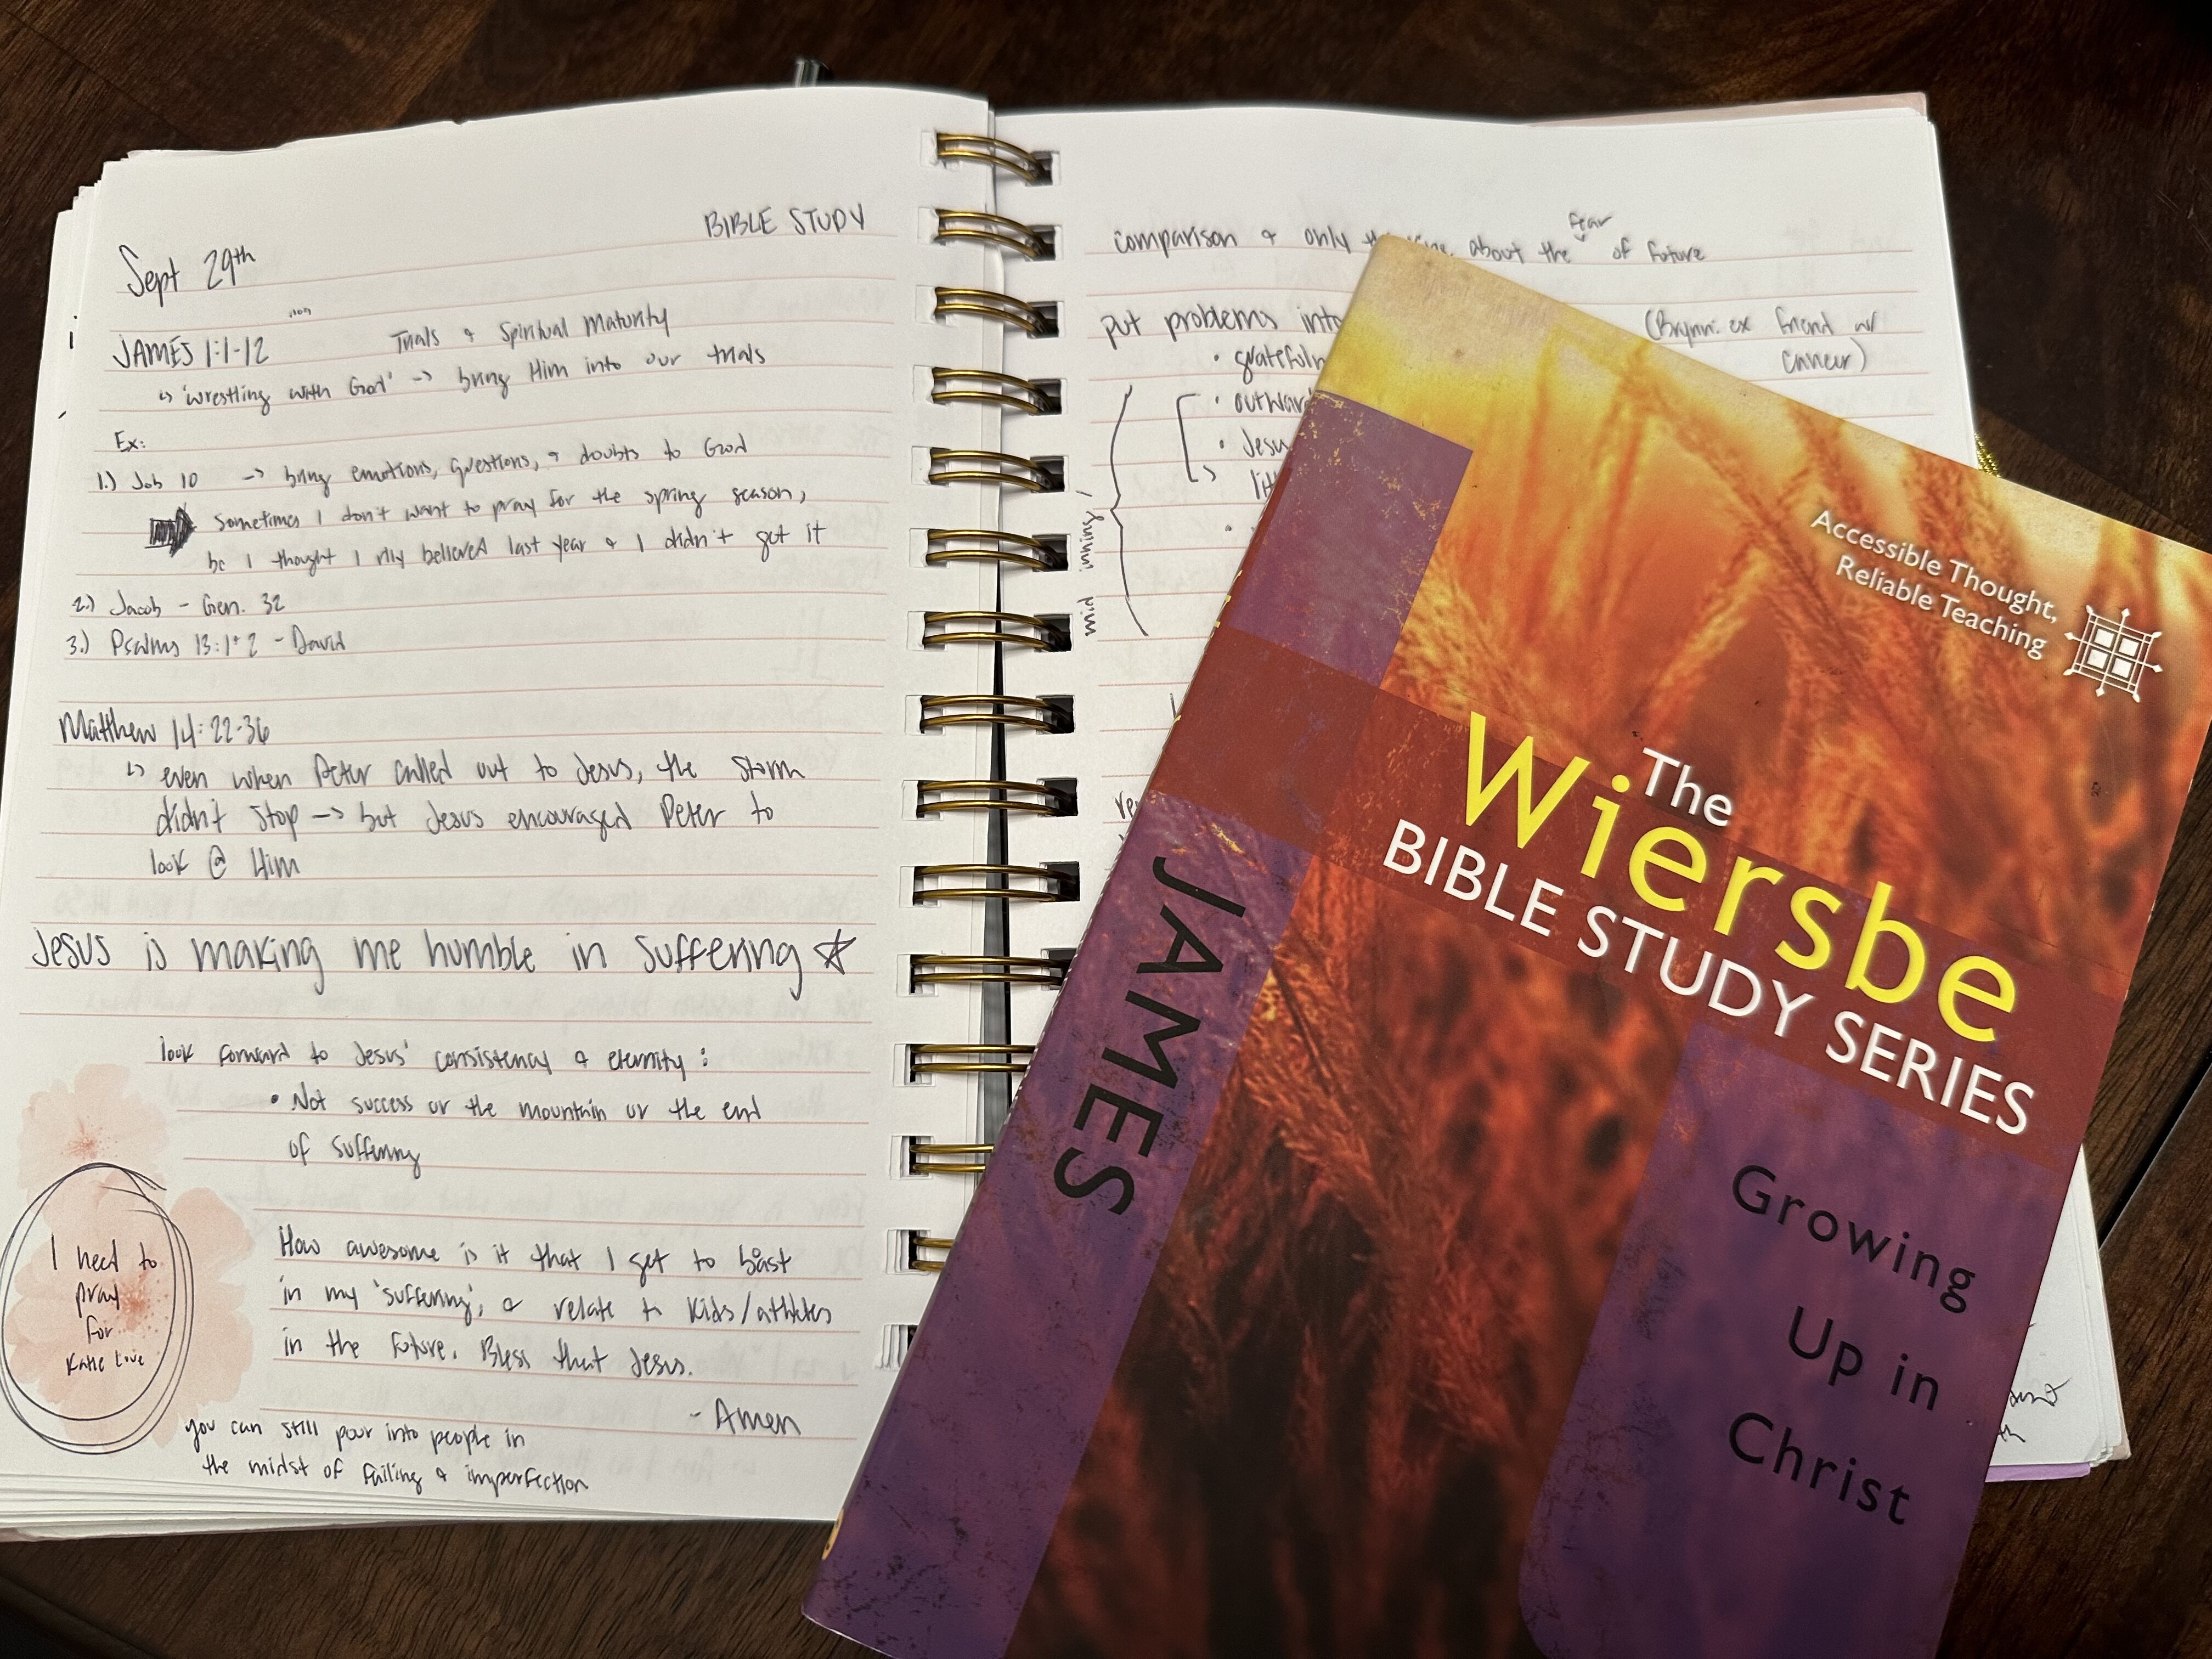 BIBLE STUDY
Sept 29th
JAMES 1:1-12 Trials & Spiritual Maturity
↳ 'wrestling with God' -> bring Him into our trials
Ex:
1.) Job 10 -> bring emotions, questions, & doubts to God
sometimes I don't want to pray for the spring season,
bc I thought I rlly believed last year & I didn't get it
2.) Jacob - Gen. 32
3.) Psalms 13:1+2 - David
Matthew 14:22-36
↳ even when Peter called out to Jesus, the storm
didn't stop -> but Jesus encouraged Peter to
look @ Him
Jesus is making me humble in suffering ☆
look forward to Jesus' consistency & eternity:
• Not success or the mountain or the end
of suffering
How awesome is it that I get to boast
in my 'suffering', & relate to kids/athletes
in the future. Bless that Jesus.
- Amen
I need to
pray
for
Katie Love
you can still pour into people in
the midst of failing & imperfection
comparison & only about the fear of future
put problems into (Brynn: ex friend w/
cancer)
• 
• 
• Jesu
mid innings
Accessible Thought,
Reliable Teaching
The
Wiersbe
BIBLE STUDY SERIES
JAMES
Growing
Up in
Christ